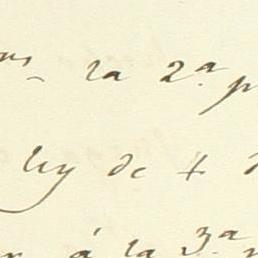 la 2.ª
ley de +
á la 3.ª